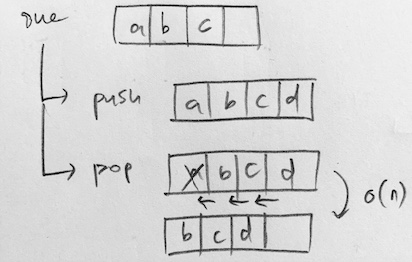 que a b c
push a b c d
pop a b c d
o(n)
b c d